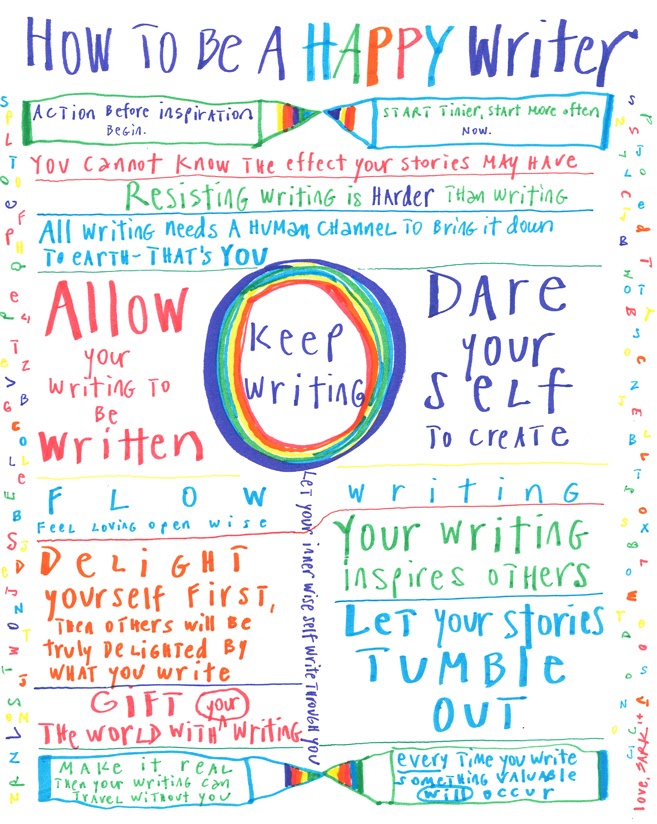 How To Be A HAPPY Writer
ACTION Before inspiration
Begin.
START Tinier, start more often
NOW.
You cannot know the effect your stories may have
Resisting writing is Harder Than writing
All writing needs A Human Channel To Bring it down
To earth - That's You
Allow
your
writing To
Be
written
Keep
writing
Dare
your
self
To create
Flow writing
Feel Loving open wise
Delight
yourself first,
Then others will Be
truly Delighted By
what you write
Gift your
The world with writing
Let your inner wise self write through you
Your writing
inspires others
Let your stories
Tumble
Out
Make it real
Then your writing can
Travel without you
every time you write
something valuable
will occur
love, SARK